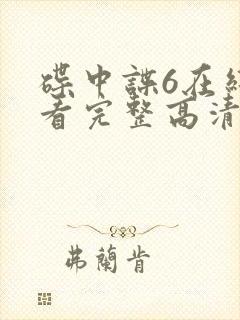 碟中諜6在線
看完整高清
弗蘭肯